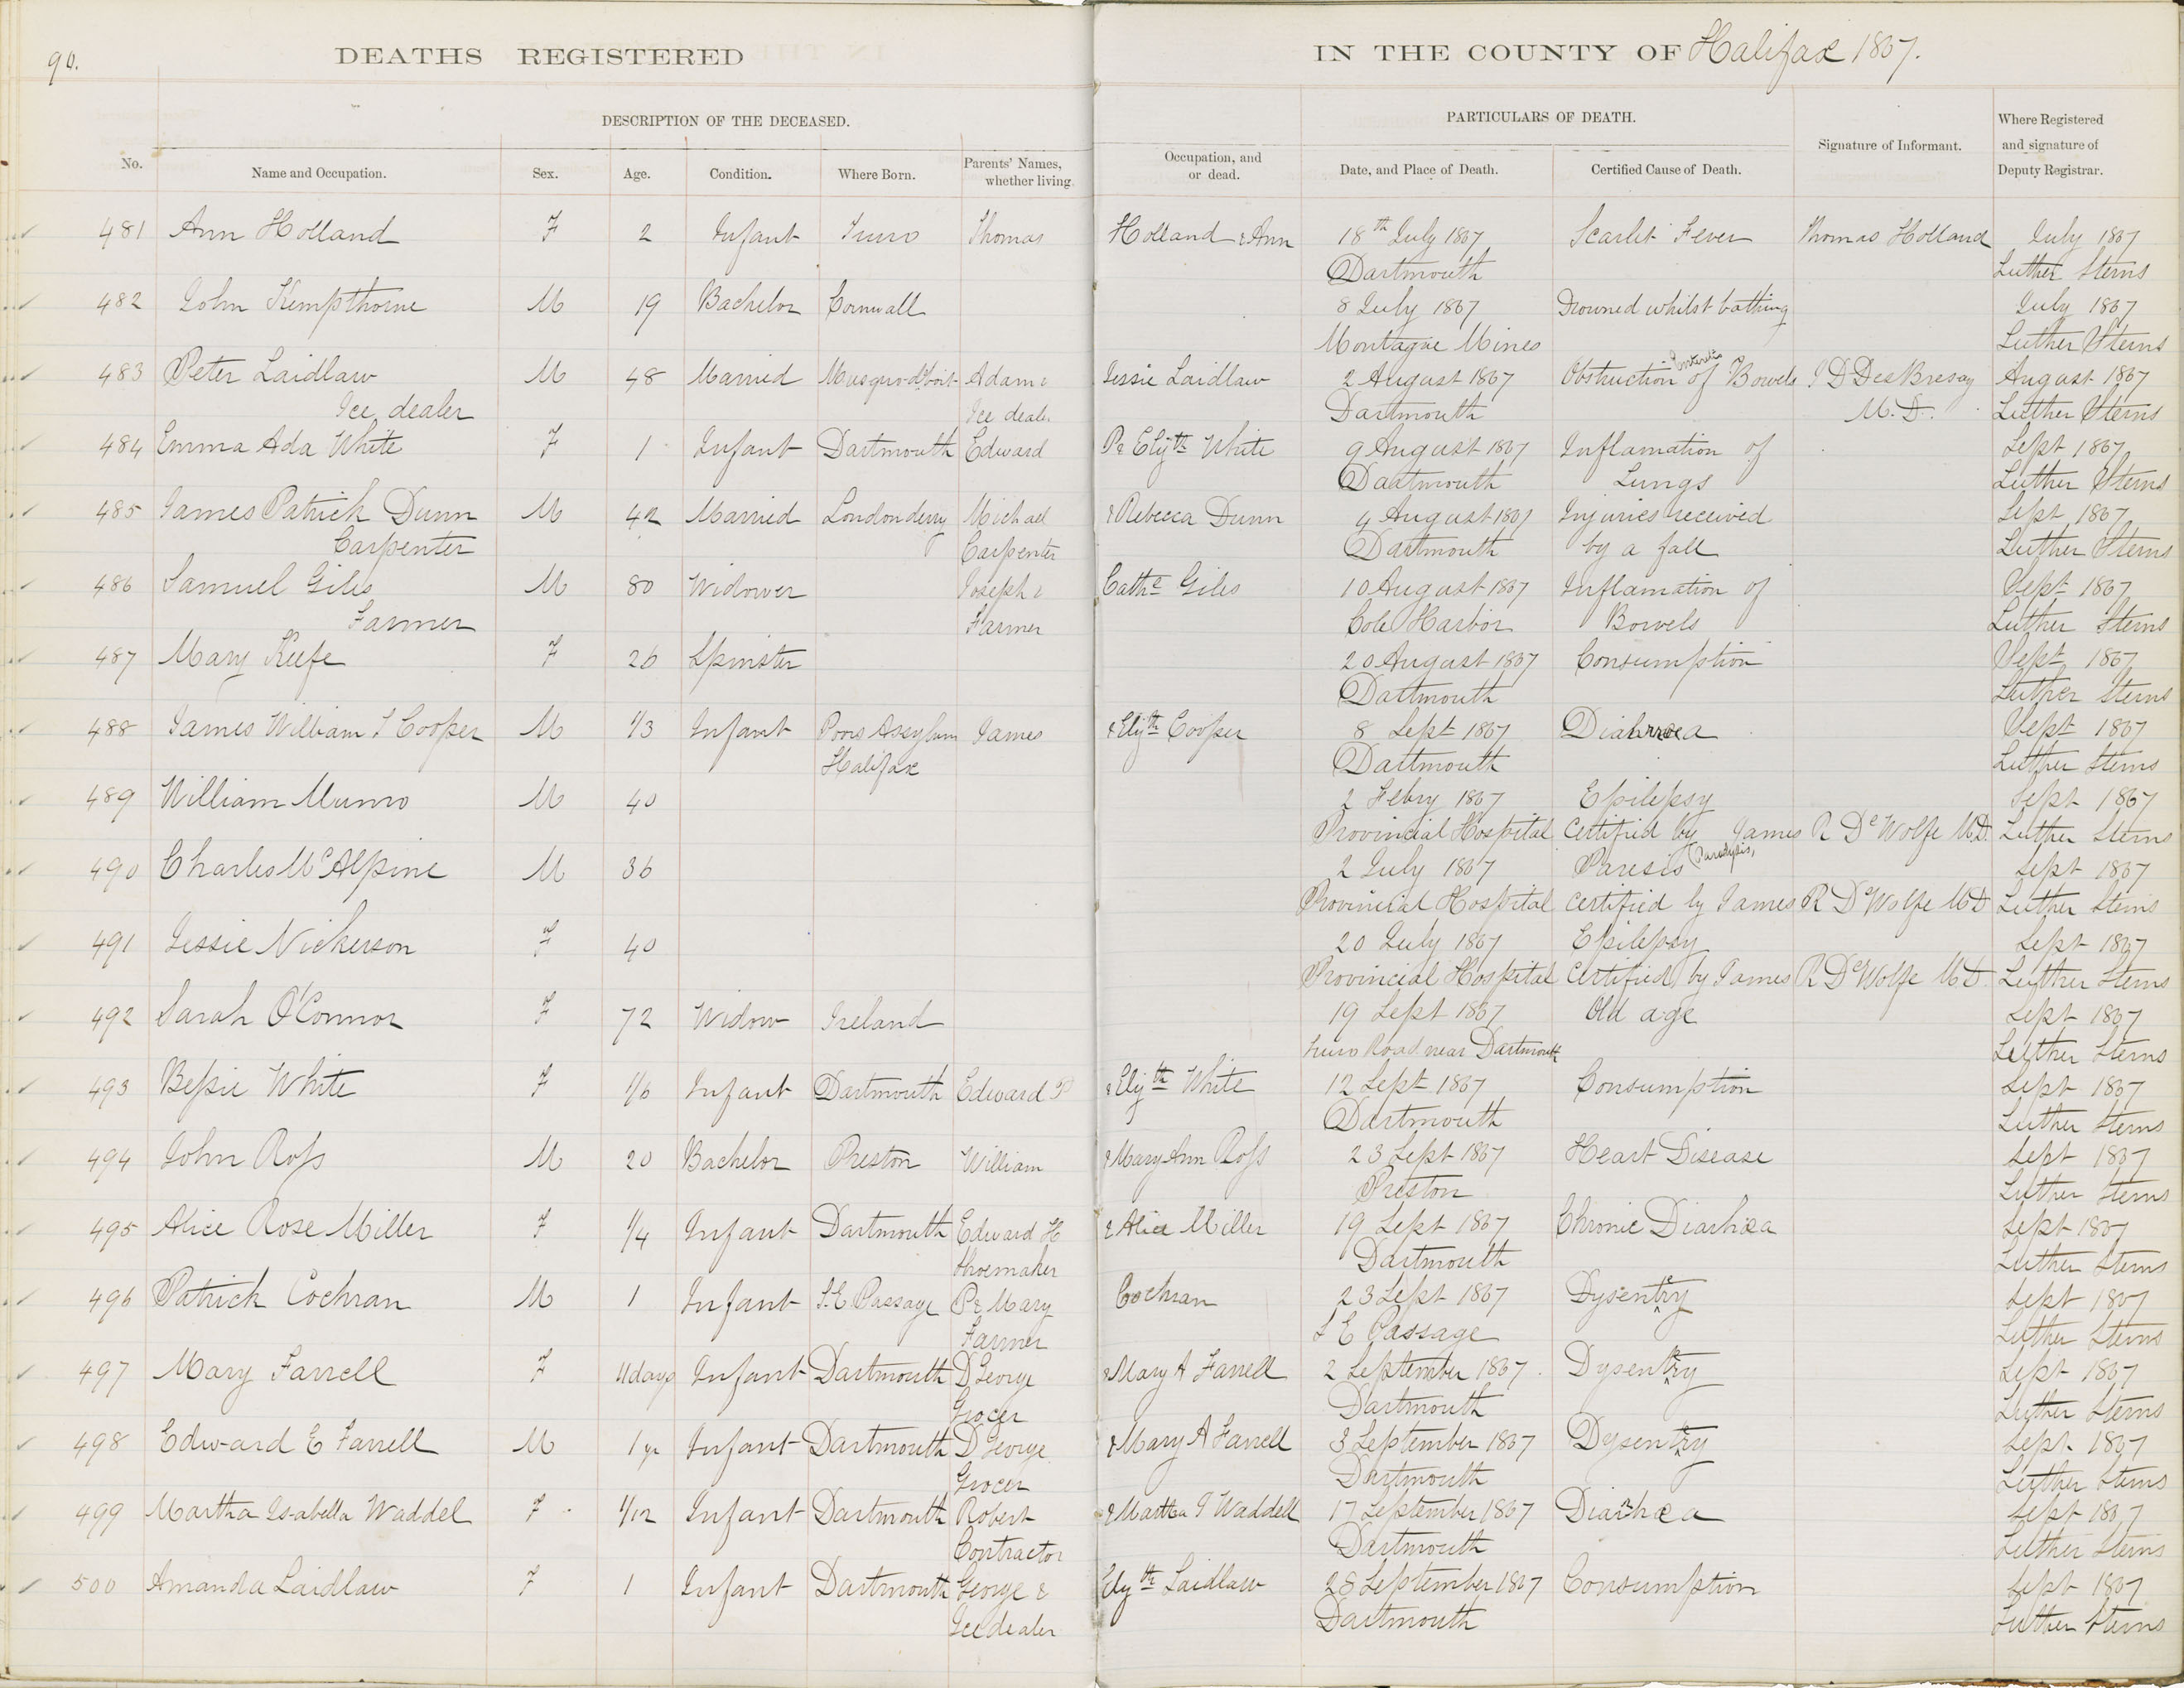 90.
DEATHS REGISTERED IN THE COUNTY OF Halifax 1867.
DESCRIPTION OF THE DECEASED. PARTICULARS OF DEATH.
No. Name and Occupation. Sex. Age. Condition. Where Born. Parents' Names, whether living Occupation, and or dead. Date, and Place of Death. Certified Cause of Death. Signature of Informant. Where Registered and signature of Deputy Registrar.
481 Ann Holland F 2 Infant Truro Thomas Holland & Ann 18th July 1867 Scarlet Fever Thomas Holland July 1867
Dartmouth Luther Sterns
482 John Kempthorne M 19 Bachelor Cornwall 8 July 1867 Drowned whilst bathing July 1867
Montague Mines Luther Sterns
483 Peter Laidlaw M 48 Married Musquodoboit Adam & Jessie Laidlaw 2 August 1867 Obstruction of Bowels DesBrisay August 1867
Ice dealer Ice deal. Dartmouth M.D. Luther Sterns
484 Emma Ada White F 1 Infant Dartmouth Edward P & Elizth White 9 August 1867 Inflamation of Sept 1867
Dartmouth Lungs Luther Sterns
485 James Patrick Dunn M 42 Married Londonderry Michael & Rebecca Dunn 4 August 1867 Injuries received Sept 1867
Carpenter Carpenter Dartmouth by a fall Luther Sterns
486 Samuel Giles M 80 Widower Joseph & Cathe Giles 10 August 1867 Inflamation of Sept 1867
Farmer Farmer Cole Harbor Bowels Luther Sterns
487 Mary Keefe F 26 Spinster 20 August 1867 Consumption Sept 1867
Dartmouth Luther Sterns
488 James William T Cooper M 1/3 Infant Poors Assylum James & Elizth Cooper 8 Sept 1867 Diahrrea Sept 1867
Halifax Dartmouth Luther Sterns
489 William Munro M 40 2 Febry 1867 Epilepsy Sept 1867
Provincial Hospital Certified by James R DeWolfe M.D. Luther Sterns
490 Charles McAlpine M 36 2 July 1867 Paresis Paralysis, Sept 1867
Provincial Hospital Certified by James R DeWolfe MD Luther Sterns
491 Jessie Nickerson F 40 20 July 1867 Epilepsy Sept 1867
Provincial Hospital Certified by James R DeWolfe M D. Luther Sterns
492 Sarah O'Connor F 72 Widow Ireland 19 Sept 1867 Old age Sept 1867
Truro Road near Dartmouth Luther Sterns
493 Bessie White F 1/6 Infant Dartmouth Edward P & Elizth White 12 Sept 1867 Consumption Sept 1867
Dartmouth Luther Sterns
494 John Ross M 20 Bachelor Preston William & Mary Ann Ross 23 Sept 1867 Heart Disease Sept 1867
Preston Luther Sterns
495 Alice Rose Miller F 1/4 Infant Dartmouth Edward H & Alice Miller 19 Sept 1867 Chronic Diarhœa Sept 1867
Shoemaker Dartmouth Luther Sterns
496 Patrick Cochran M 1 Infant S.E. Passage P & Mary Cochran 23 Sept 1867 Dysentry Sept 1867
Farmer S E Passage Luther Sterns
497 Mary Farrell F 11 days Infant Dartmouth D George & Mary A Farrell 2 September 1867 Dysentry Sept 1867
Grocer Dartmouth Luther Sterns
498 Edward E Farrell M 1 yr Infant Dartmouth D George & Mary A Farrell 3 September 1867 Dysentry Sept 1867
Grocer Dartmouth Luther Sterns
499 Martha Isabella Waddel F 1/12 Infant Dartmouth Robert & Martha I Waddell 17 September 1867 Diarrhœa Sept 1867
Contractor Dartmouth Luther Sterns
500 Amanda Laidlaw F 1 Infant Dartmouth George & Elizth Laidlaw 28 September 1867 Consumption Sept 1867
Ice dealer Dartmouth Luther Sterns